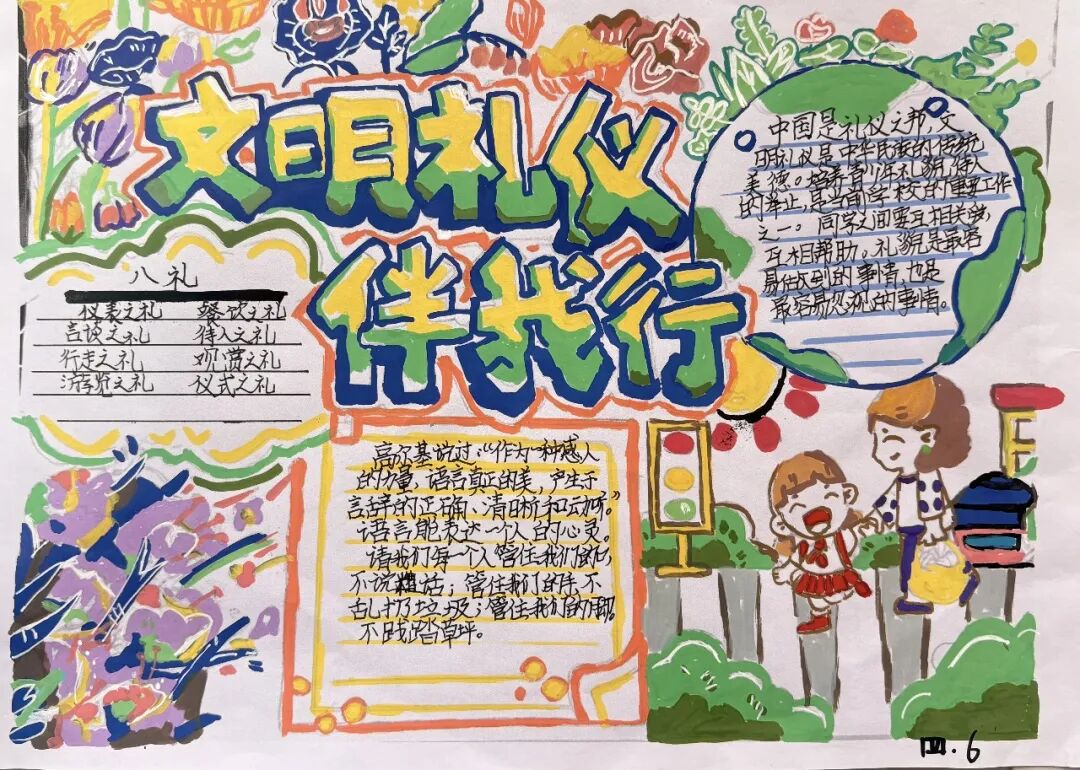 文明礼仪
伴我行
八礼
仪表之礼 餐饮之礼
言谈之礼 待人之礼
行走之礼 观赏之礼
游览之礼 仪式之礼
中国是礼仪之邦，文
明礼仪是中华民族的传统
美德。培养青少年礼貌待人
的举止，是当前学校的重要工作
之一。同学之间要互相关爱，
互相帮助。礼貌是最容
易做到的事情，也是
最容易忽视的事情。
高尔基说过：“作为一种感人
的力量，语言真正的美，产生于
言辞的正确、清晰和动听。”
语言能表达一个人的心灵。
请我们每一个人管住我们的口，
不说粗话；管住我们的手，不
乱扔垃圾；管住我们的脚，
不践踏草坪。
四.6